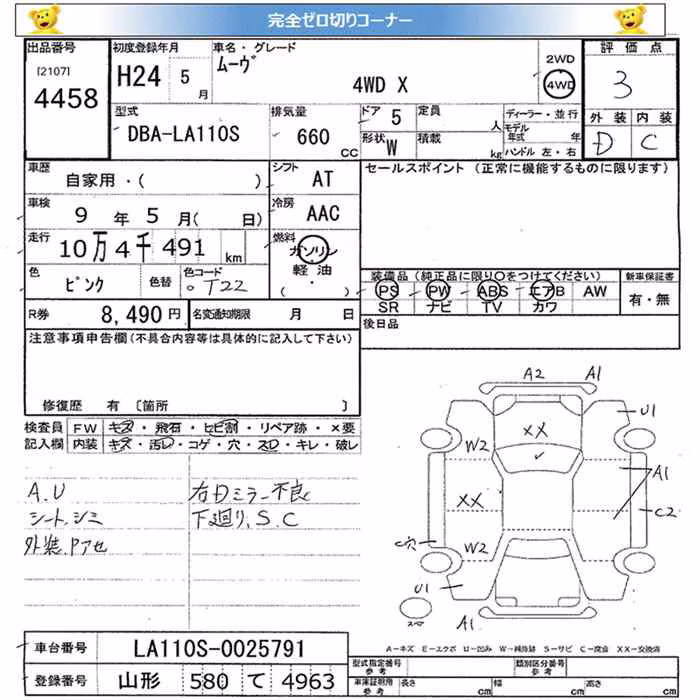 完全ゼロ切りコーナー
出品番号
[2107]
4458
初度登録年月
H24 5 月
車名・グレード
ムーヴ
4WD X
2WD
4WD
評価点
3
外装 内装
D C
型式
DBA-LA110S
排気量
660 CC
ドア 5
定員 人
形状 W
積載 kg
ディーラー・並行
モデル年式 年
ハンドル 左・右
車歴
自家用・( )
シフト
AT
セールスポイント (正常に機能するものに限ります)
車検
9 年 5 月( 日)
冷房
AAC
走行
10万4千491 km
燃料
ガソリン
軽油
( ・ )
色
ピンク
色替
色コード
T22
装備品(純正品に限り○をつけてください)
PS PW ABS エアB AW
SR ナビ TV カワ
新車保証書
有・無
R券
8,490円
名変通知期限 月 日
後日品
注意事項申告欄(不具合内容等は具体的に記入して下さい)
修復歴 有 〔箇所 〕
検査員記入欄
FW キズ・飛石・ヒビ割・リペア跡・×要
内装 キズ・汚レ・コゲ・穴・スレ・キレ・破レ
A.U
シート.シミ
外装.アセ
右Dミラー不良
下廻り.S.C
A2 A1
U1
W2 XX
A1
XX
C2
C穴 W2
U1
A1
A=キズ E=エクボ U=凹み W=補修跡 S=サビ C=腐食 XX=交換済
車台番号
LA110S-0025791
登録番号
山形 580 て 4963
型式指定番号 参考
類別区分番号 参考
車庫証明用 参考 長さ cm 幅 cm 高さ cm